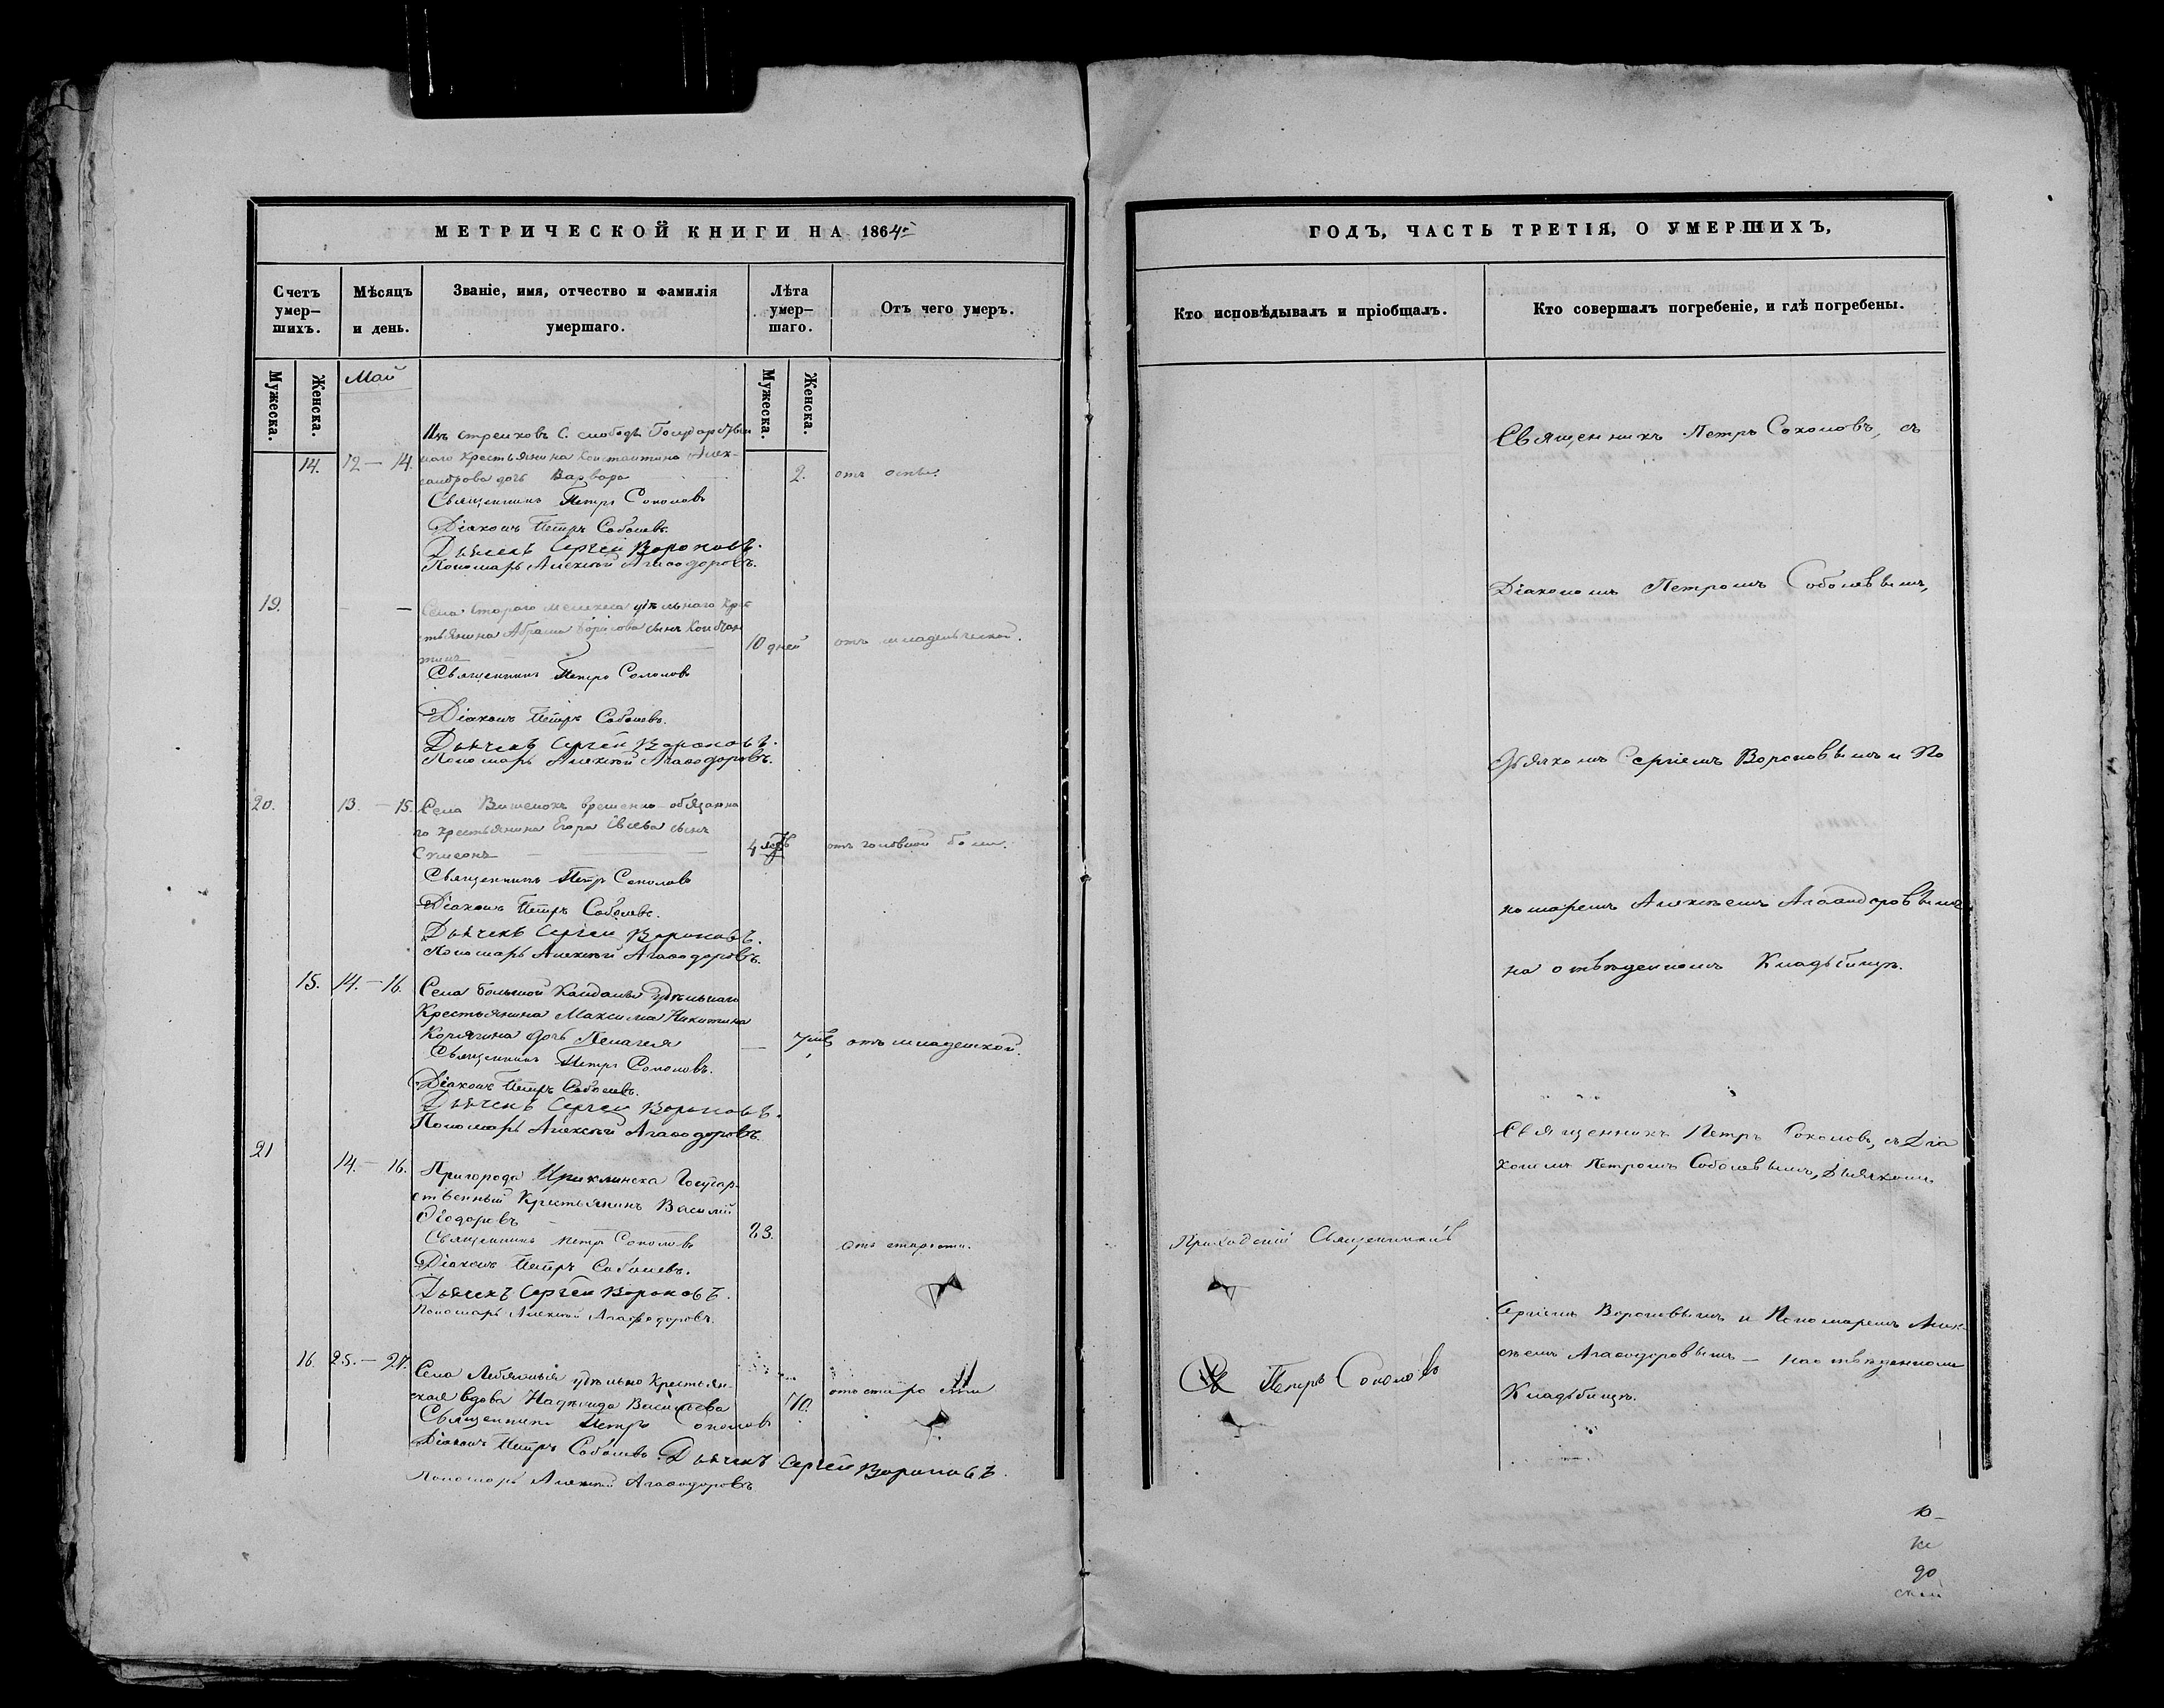 МЕТРИЧЕСКОЙ КНИГИ НА 1864й
Счетъ умер-шихъ.
Мѣсяцъ и день.
Званіе, имя, отчество и фамилія умершаго.
Лѣта умер-шаго.
Отъ чего умеръ.
Мужеска.
Женска.
Май
Мужеска.
Женска.
стрелковъ С. слободы Государствен
14. 12 — 14. наго крестьянина Константина Алек-
сандрова дочь Варвара 2. отъ оспы.
Священникъ Петръ Соколовъ
Діаконъ Петръ Соболевъ.
Дьячекъ Сергей Вороновъ.
Пономарь Алексѣй Агаѳодоровъ.
19. — — Села Стараго удѣльнаго кре
стьянина Абрама Борисова сынъ Констан
тинъ 10 дней отъ младенческой.
Священникъ Петръ Соколовъ
Діаконъ Петръ Соболевъ.
Дьячекъ Сергей Вороновъ.
Пономарь Алексѣй Агаѳодоровъ.
20. 13. — 15. Села Вишенокъ временно-обязанна
го крестьянина Егора сынъ
Симеонъ 4 отъ головной боли.
Священникъ Петръ Соколовъ
Діаконъ Петръ Соболевъ.
Дьячекъ Сергей Вороновъ.
Пономарь Алексѣй Агаѳодоровъ.
15. 14. — 16. Села Большой Кандалы Удѣльнаго
Крестьянина Максима Никитина
дочь Пелагея — 7 отъ младенской.
Священникъ Петръ Соколовъ.
Діаконъ Петръ Соболевъ.
Дьячекъ Сергей Вороновъ.
Пономарь Алексѣй Агаѳодоровъ.
21 14. — 16. Пригорода Государ-
ственный Крестьянинъ Василій
Ѳеодоровъ 83. отъ старости.
Священникъ Петръ Соколовъ
Діаконъ Петръ Соболевъ.
Дьячекъ Сергей Вороновъ.
Пономарь Алексѣй Агаѳодоровъ.
16. 25. — 27. Села удѣльно крестьян-
ская вдова Васильева 70. отъ старости
Священникъ Петръ Соколовъ
Діаконъ Петръ Соболевъ. Дьячекъ Сергей Вороновъ.
Пономарь Алексѣй Агаѳодоровъ
ГОДЪ, ЧАСТЬ ТРЕТІЯ, О УМЕРШИХЪ,
Кто исповѣдывалъ и пріобщалъ.
Кто совершалъ погребеніе, и гдѣ погребены.
Священникъ Петръ Соколовъ, съ
Діакономъ Петромъ Соболевымъ,
Дьячкомъ Сергіемъ Вороновымъ и По
номаремъ Алексѣемъ Агаѳодоровымъ
на отведенномъ Кладбищѣ.
Священникъ Петръ Соколовъ, съ Діа
кономъ Петромъ Соболевымъ, Дьячкомъ
Приходскій Священникъ
Сергіемъ Вороновымъ и Пономаремъ Алек-
сѣемъ Агаѳодоровымъ — на отведенномъ
Петръ Соколовъ
Кладбищѣ.